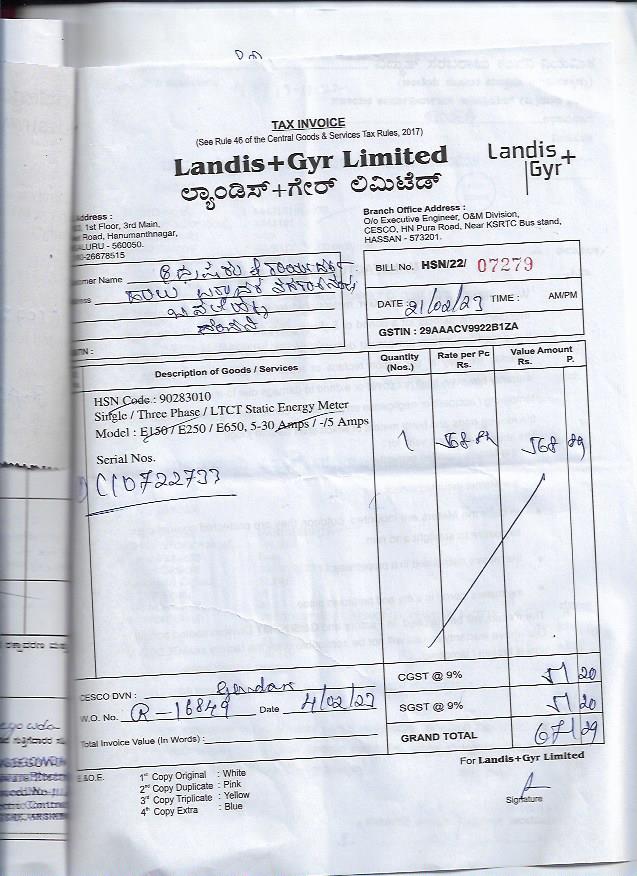 TAX INVOICE
(See Rule 46 of the Central Goods & Services Tax Rules, 2017)
Landis+Gyr Limited
ಲ್ಯಾಂಡಿಸ್+ಗೇರ್ ಲಿಮಿಟೆಡ್
Landis+
Gyr
Address :
1st Floor, 3rd Main,
Road, Hanumanthnagar,
ALURU - 560050.
-26678515
Branch Office Address :
O/o Executive Engineer, O&M Division,
CESCO, HN Pura Road, Near KSRTC Bus stand,
HASSAN - 573201.
omer Name
BILL No. HSN/22/ 07279
DATE : 21/02/23 TIME : AM/PM
GSTIN : 29AAACV9922B1ZA
TIN :
Description of Goods / Services
Quantity (Nos.)
Rate per Pc Rs.
Value Amount Rs. P.
HSN Code : 90283010
Single / Three Phase / LTCT Static Energy Meter
Model : E150 / E250 / E650, 5-30 Amps / -/5 Amps
1
568 89
Serial Nos.
C10722733
CESCO DVN :
W.O. No. R-16849 Date 4/02/23
Total Invoice Value (In Words) :
CGST @ 9% 51 20
SGST @ 9% 51 20
GRAND TOTAL 671 29
E.&O.E.
1st Copy Original : White
2nd Copy Duplicate : Pink
3rd Copy Triplicate : Yellow
4th Copy Extra : Blue
For Landis+Gyr Limited
Signature